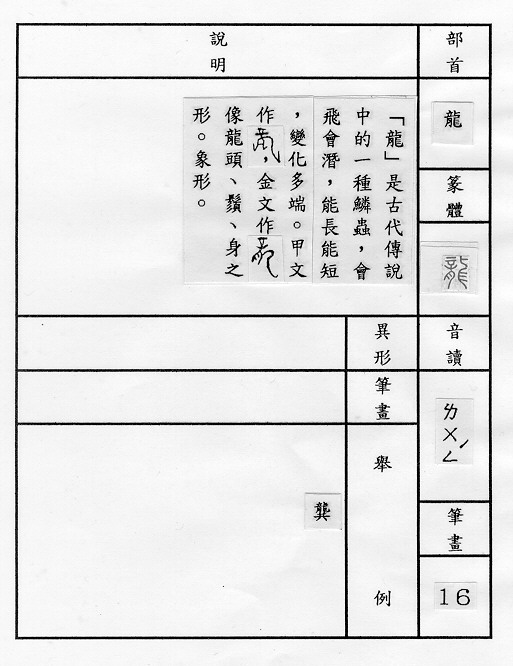 部首
龍
篆體
龍
音讀
ㄌㄨㄥˊ
筆畫
16
說明
「龍」是古代傳說
中的一種鱗蟲，會
飛會潛，能長能短
，變化多端。甲文
作，金文作
像龍頭、鬚、身之
形。象形。
異形
筆畫
舉例
龔